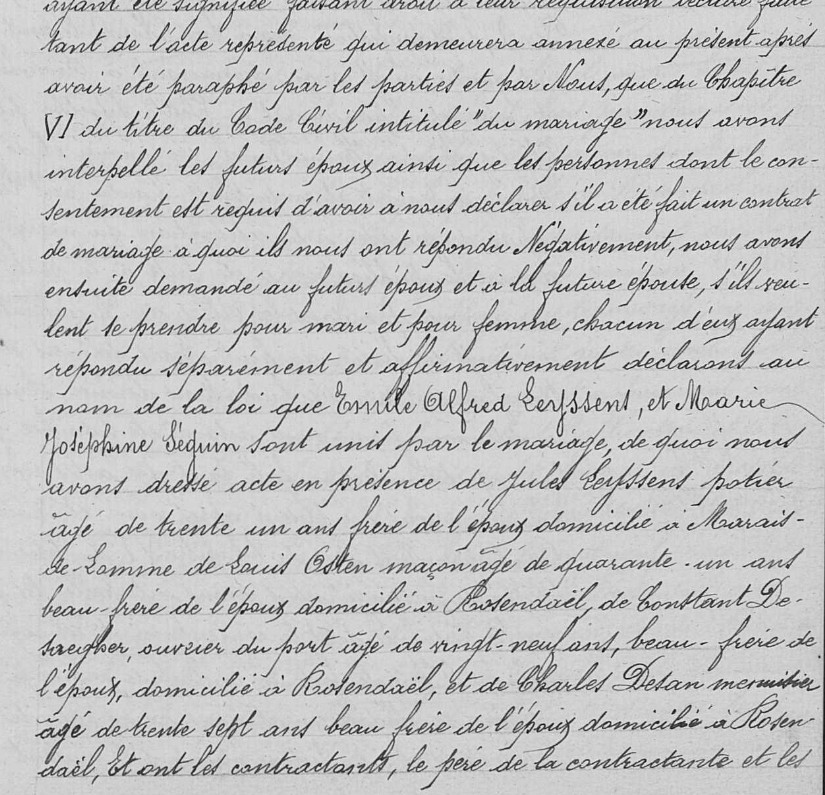 ayant été signifiée faisant droit à leur réquisition déclare
tant de l'acte représenté qui demeurera annexé au présent après
avoir été paraphé par les parties et par Nous, que du Chapitre
VI du titre du Code Civil intitulé "du mariage" nous avons
interpellé les futurs époux ainsi que les personnes dont le con-
sentement est requis d'avoir à nous déclarer s'il a été fait un contrat
de mariage à quoi ils nous ont répondu Négativement, nous avons
ensuite demandé au futurs époux et à la future épouse, s'ils veu-
lent se prendre pour mari et pour femme, chacun d'eux ayant
répondu séparément et affirmativement déclarons au
nom de la loi que Emile Alfred Leyssens, et Marie
Joséphine Séguin sont unis par le mariage, de quoi nous
avons dressé acte en présence de Jules Leyssens potier
âgé de trente un ans frère de l'époux domicilié à Marais-
de-Lomme de Louis Osten maçon âgé de quarante-un ans
beau-frère de l'époux domicilié à Rosendaël, de Constant De-
saegher, ouvrier du port âgé de vingt-neuf ans, beau-frère de
l'époux, domicilié à Rosendaël, et de Charles Desan menuisier
âgé de trente sept ans beau frère de l'époux domicilié à Rosen-
daël, Et ont les contractants, le père de la contractante et les